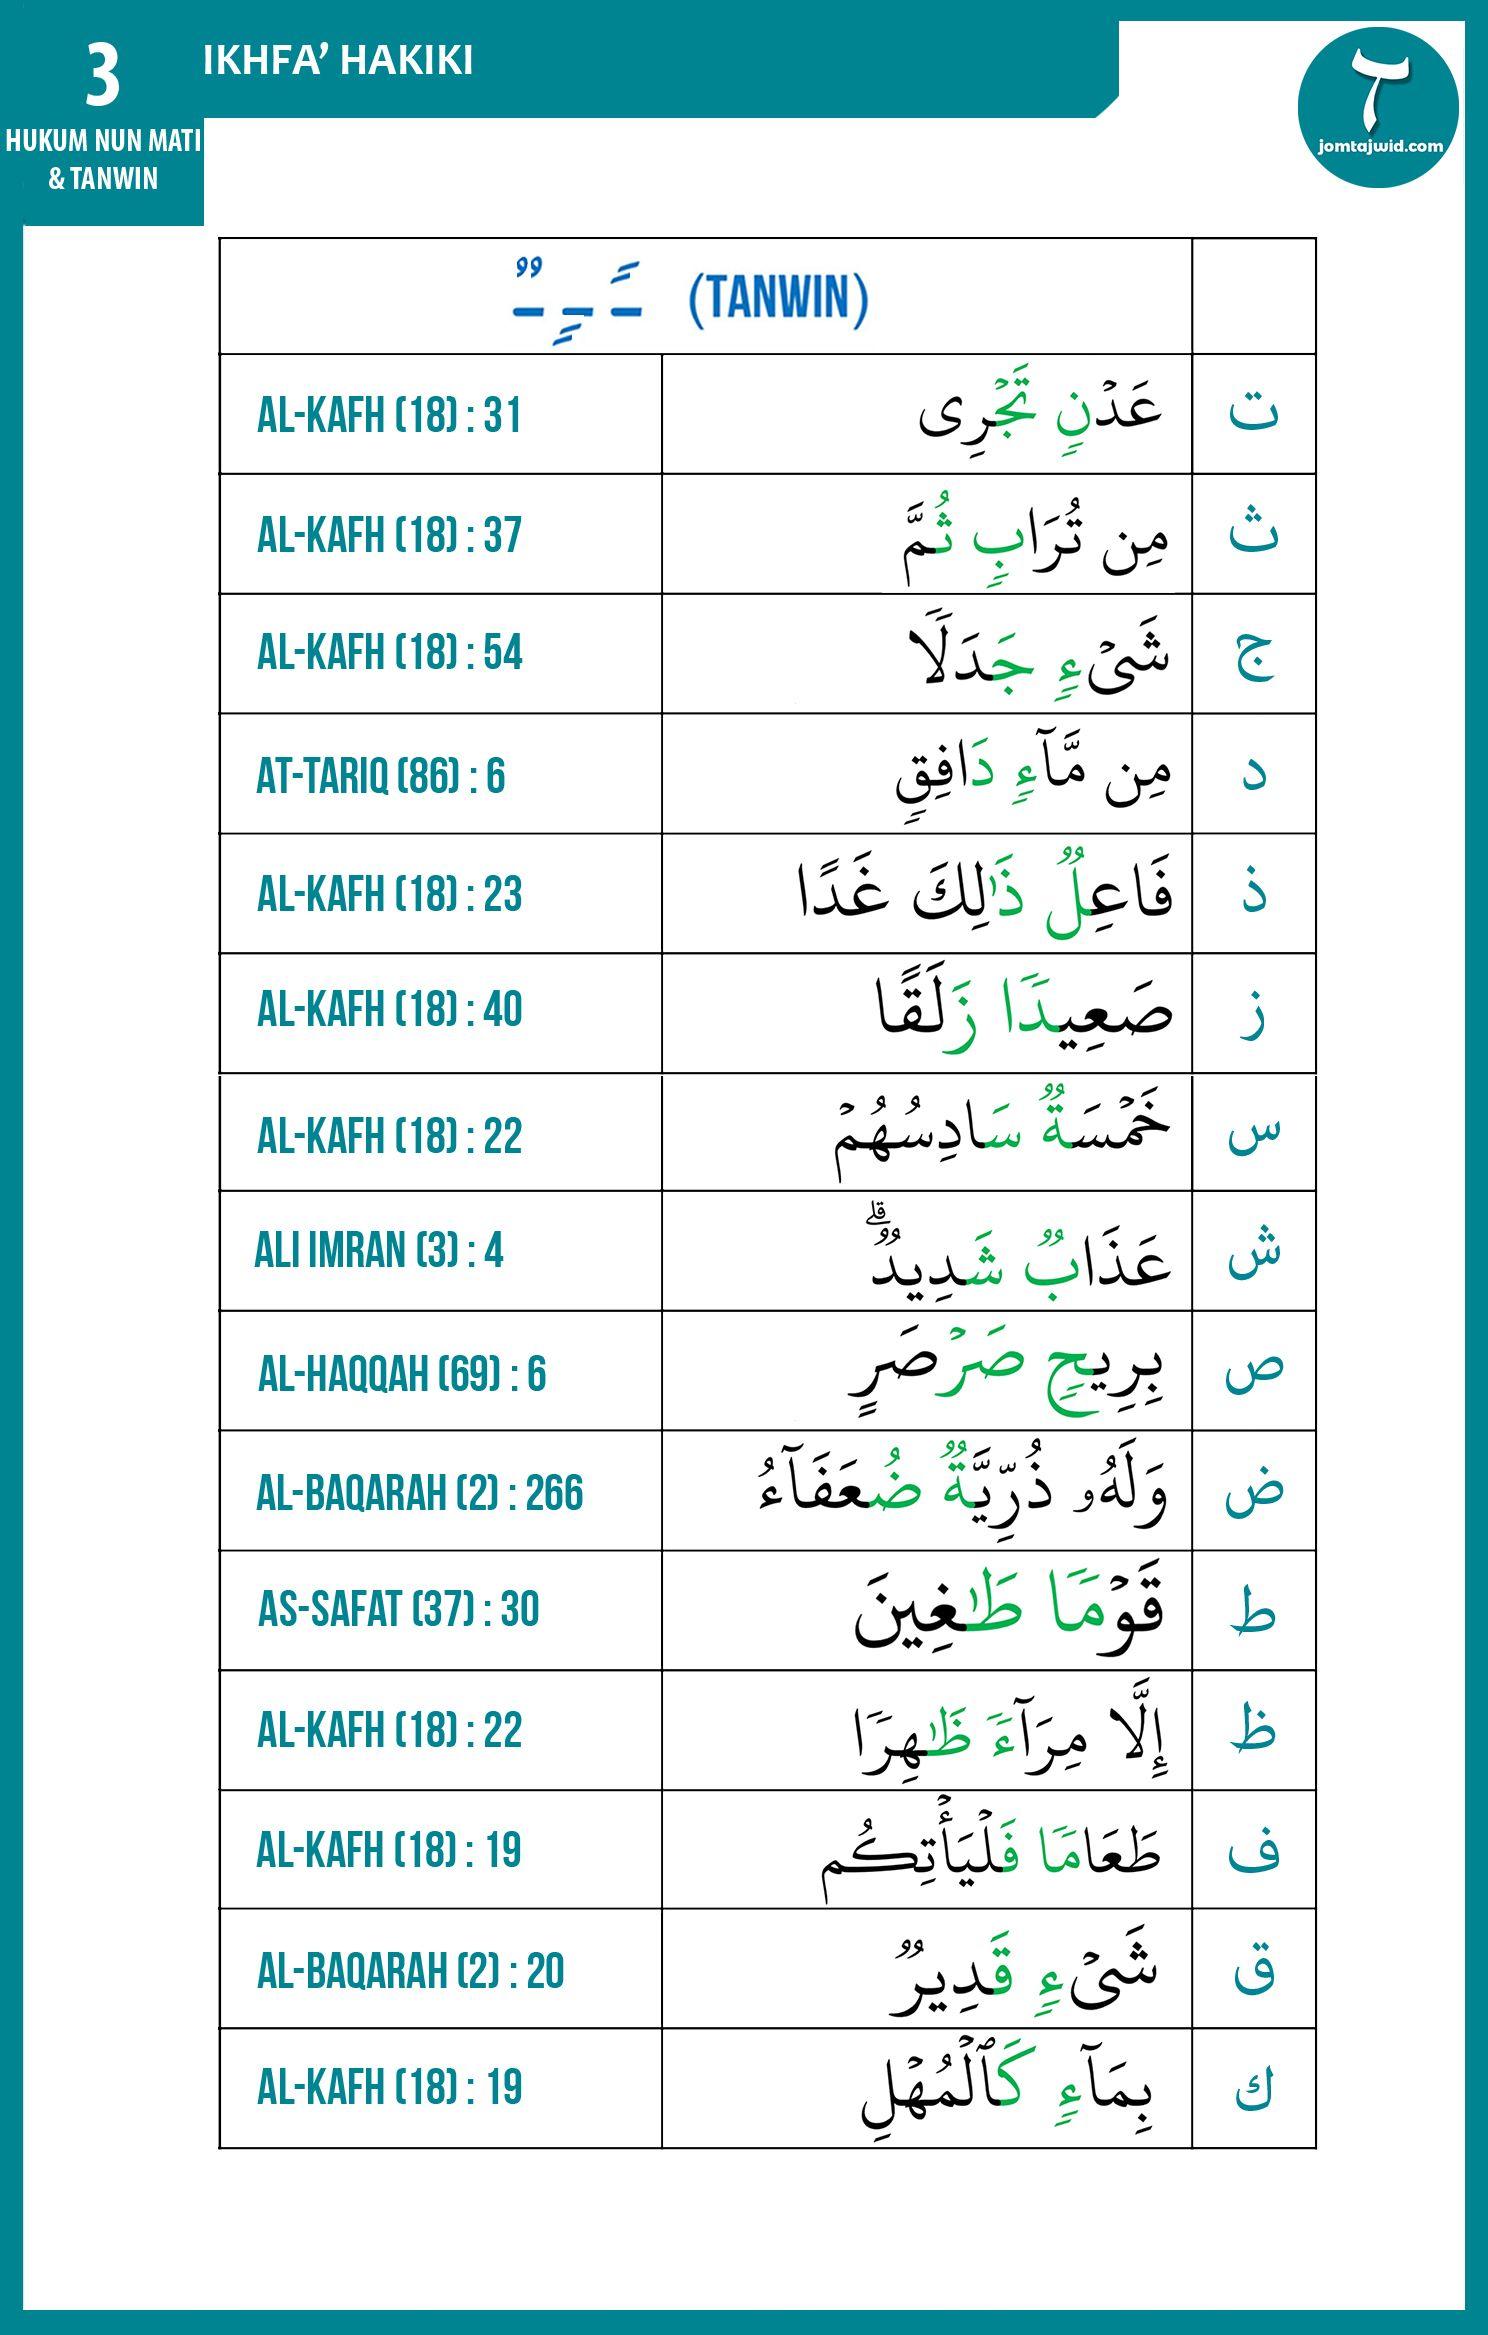 3
HUKUM NUN MATI
& TANWIN
IKHFA’ HAKIKI
jomtajwid.com
(TANWIN)
ت عَدْنٍ تَجْرِى AL-KAFH (18) : 31
ث مِن تُرَابٍ ثُمَّ AL-KAFH (18) : 37
ج شَىْءٍ جَدَلًا AL-KAFH (18) : 54
د مِن مَّآءٍ دَافِقٍ AT-TARIQ (86) : 6
ذ فَاعِلٌ ذَٰلِكَ غَدًا AL-KAFH (18) : 23
ز صَعِيدًا زَلَقًا AL-KAFH (18) : 40
س خَمْسَةٌ سَادِسُهُمْ AL-KAFH (18) : 22
ش عَذَابٌ شَدِيدٌ ۗ ALI IMRAN (3) : 4
ص بِرِيحٍ صَرْصَرٍ AL-HAQQAH (69) : 6
ض وَلَهُۥ ذُرِّيَّةٌ ضُعَفَآءُ AL-BAQARAH (2) : 266
ط قَوْمًا طَٰغِينَ AS-SAFAT (37) : 30
ظ إِلَّا مِرَآءً ظَٰهِرًا AL-KAFH (18) : 22
ف طَعَامًا فَلْيَأْتِكُم AL-KAFH (18) : 19
ق شَىْءٍ قَدِيرٌ AL-BAQARAH (2) : 20
ك بِمَآءٍ كَٱلْمُهْلِ AL-KAFH (18) : 19